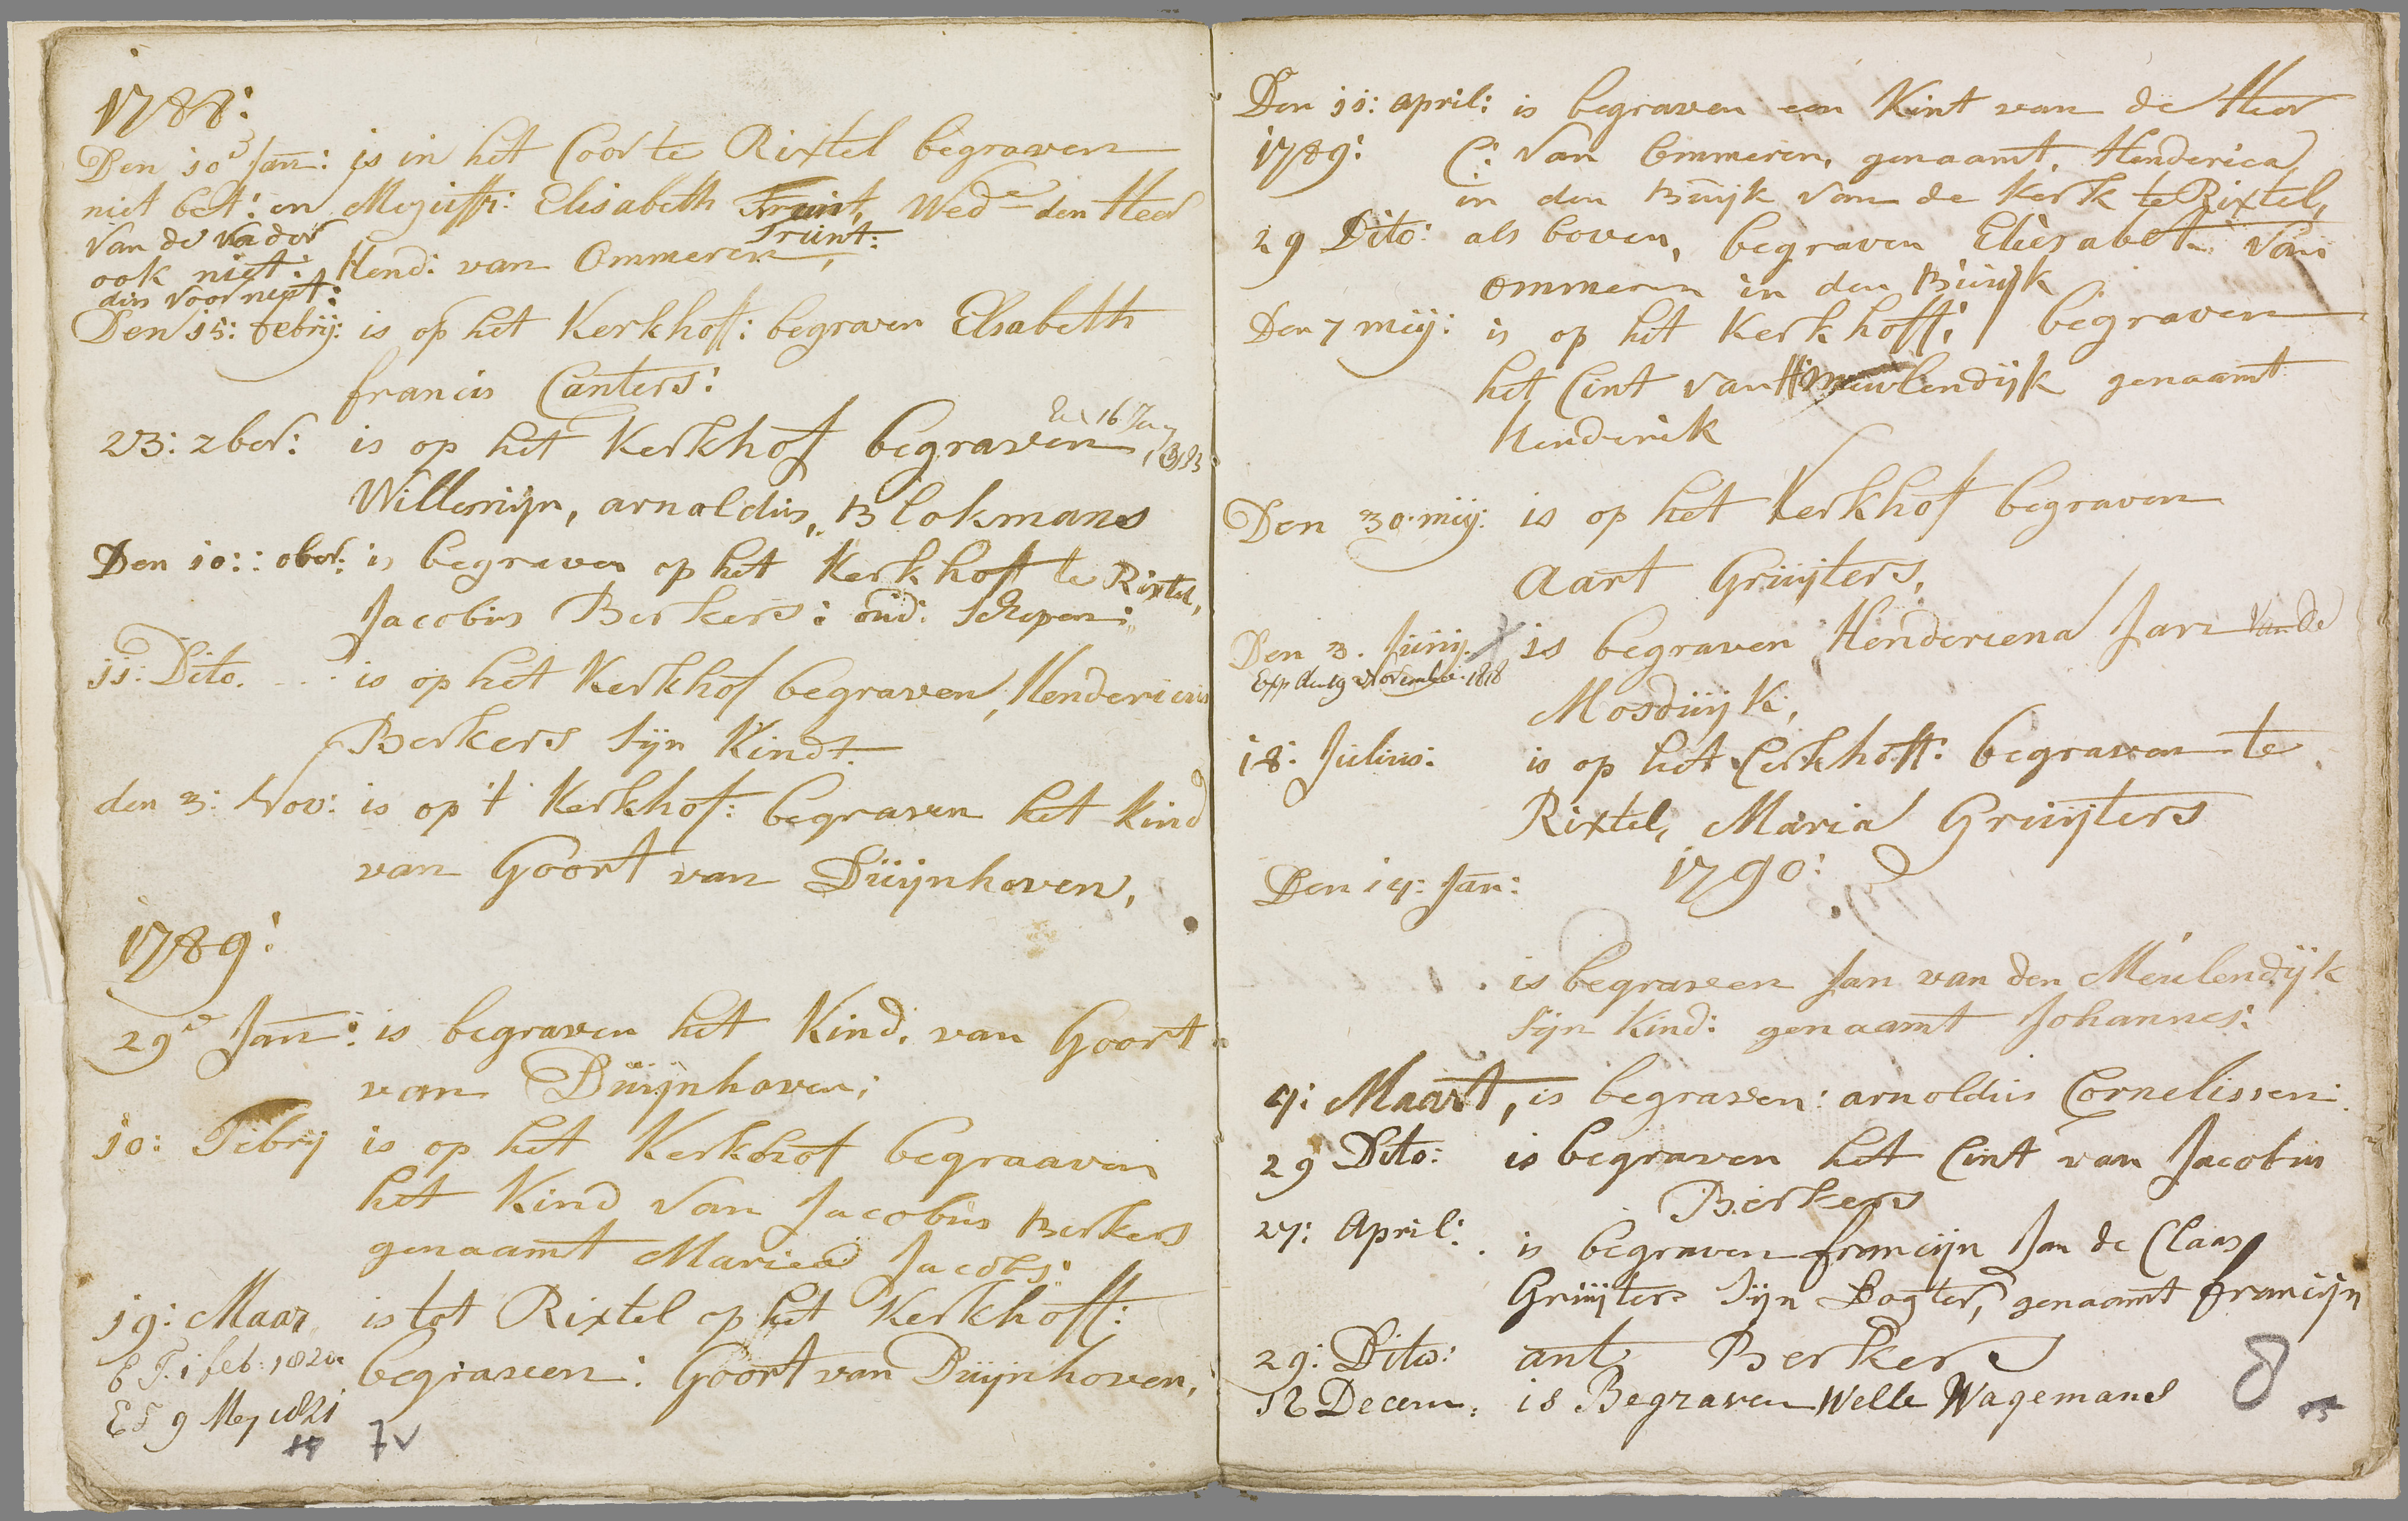 1788:
Den 10d Jan: is in het Coor te Rixtel begraven
niet bet: en Mejuffr: Elisabeth Truint, Wede den Heer
Van de vader Truint:
ook niet: Hend: van Ommeren,
dus voor niet:
Den 15: febrij: is op het Kerkhoff: begraven Elsabeth
francis Canters:
Ex 16 Ja
23: 7ber: is op het Kerkhof begraven,
Willemijn, arnoldus, Blokmans
Den 10:: ober: is begraven op het Kerkhoff te Rixtel,
Jacobus Berkers: oud: schepen:
11: Dito. is op het Kerkhof begraven, Hendericus
Berkers sijn Kindt.
den 3: Nov: is op 't Kerkhof: begraven het kind
van Goort van Duijnhoven,
1789:
29d Jan: is begraven het Kind, van Goort
van Duijnhoven;
10: Febrij is op het Kerkhof begraaven
het Kind van Jacobus Berkers
genaamt Maria Jacobs:
19: Maar is tot Rixtel op het Kerkhoff:
E F. 1 feb: 1820 begraven: Goort van Duijnhoven,
E F 9 Mey 1821
7v
Den 11: april: is begraven een Kint van de Heer
1789: C: Van Ommeren, genaamt, Henderica,
in den Buijk van de Kerk te Rixtel,
29 Dito: als boven, begraven Eliesabet van
ommeren in den Buijk
Den 7 meij: is op het Kerkhoff: begraven
het Cint van H Meuwlendijk genaamt
Henderik
Den 30: meij: is op het Kerkhof begraven
Aart Gruijters,
Den 3. Junij. is begraven Henderiena Jan van de
Exp den 19 November 1818
Mosdijk,
18: Julius: is op het Cerkhoff: begraven te
Rixtel, Maria Gruijters
Den 14: Jan: 1790:
is begraven Jan van den Meulendijk
sijn Kind: genaamt Johannes:
4: Maart, is begraven: arnoldus Cornelissen:
29 Dito: is begraven het Cint van Jacobus
Berkers
27: April: is begraven francijn Jan de Claas
Gruijters sijn Dogter, genaamt francijn
29: Dito: ant Berkers
12 Decem: is Begraven Welle Wagemans
8